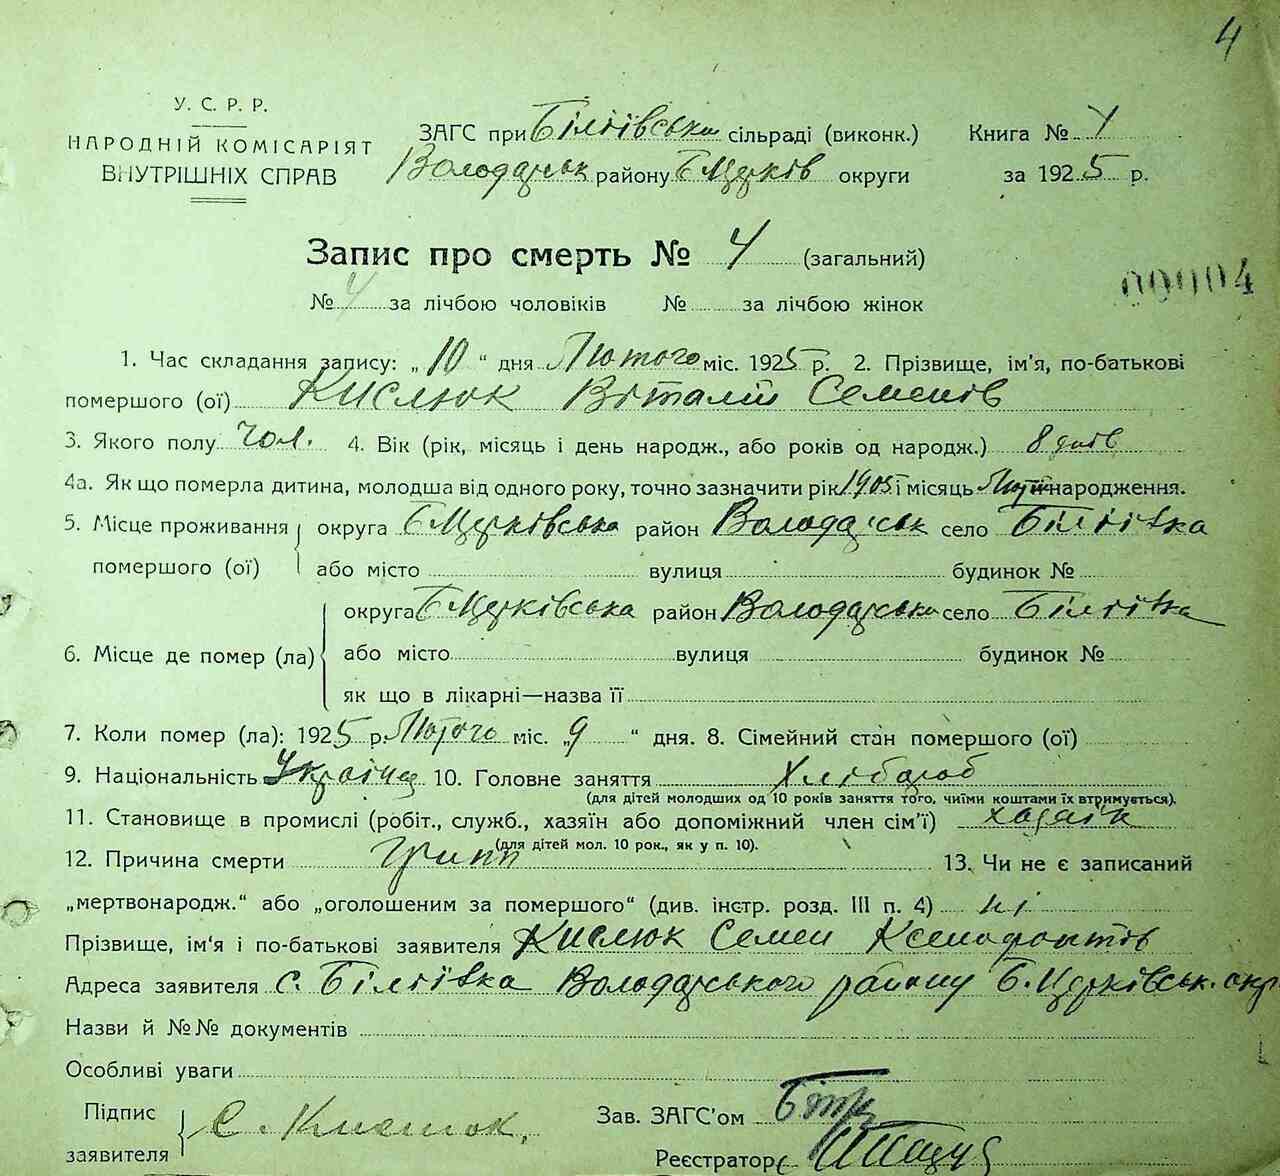 4
У. С. Р. Р.
НАРОДНІЙ КОМІСАРІЯТ
ВНУТРІШНІХ СПРАВ
ЗАГС при Біліївськи сільраді (виконк.)
Володарськ району Б Церків округи
Книга № 1
за 1925 р.
Запис про смерть № 4 (загальний)
№ 4 за лічбою чоловіків № за лічбою жінок
00004
1. Час складання запису: „10“ дня Лютого міс. 1925 р. 2. Прізвище, ім'я, по-батькові
помершого (ої) Кислюк Віталій Семенів
3. Якого полу чол. 4. Вік (рік, місяць і день народж., або років од народж.) 8 днів
4а. Як що померла дитина, молодша від одного року, точно зазначити рік і місяць народження.
5. Місце проживання помершого (ої) округа Б Церківська район Володарськ село Біліївка
або місто вулиця будинок №
6. Місце де помер (ла) округа Б Церківська район Володарськи село Біліївка
або місто вулиця будинок №
як що в лікарні—назва її
7. Коли помер (ла): 1925 р. Лютого міс. „9“ дня. 8. Сімейний стан помершого (ої)
9. Національність Україц 10. Головне заняття Хлібороб
(для дітей молодших од 10 років заняття того, чиїми коштами їх втримується).
11. Становище в промислі (робіт., служб., хазяїн або допоміжний член сім'ї) хазаїн
(для дітей мол. 10 рок., як у п. 10).
12. Причина смерти Грипп 13. Чи не є записаний
„мертвонародж.“ або „оголошеним за помершого“ (див. інстр. розд. III п. 4) ні
Прізвище, ім'я і по-батькові заявителя Кислюк Семен Ксенофонтів
Адреса заявителя с. Біліївка Володарського району Б. Церківськ. окр.
Назви й №№ документів
Особливі уваги
Підпис заявителя С. Кислюк,
Зав. ЗАГС'ом
Реєстратор